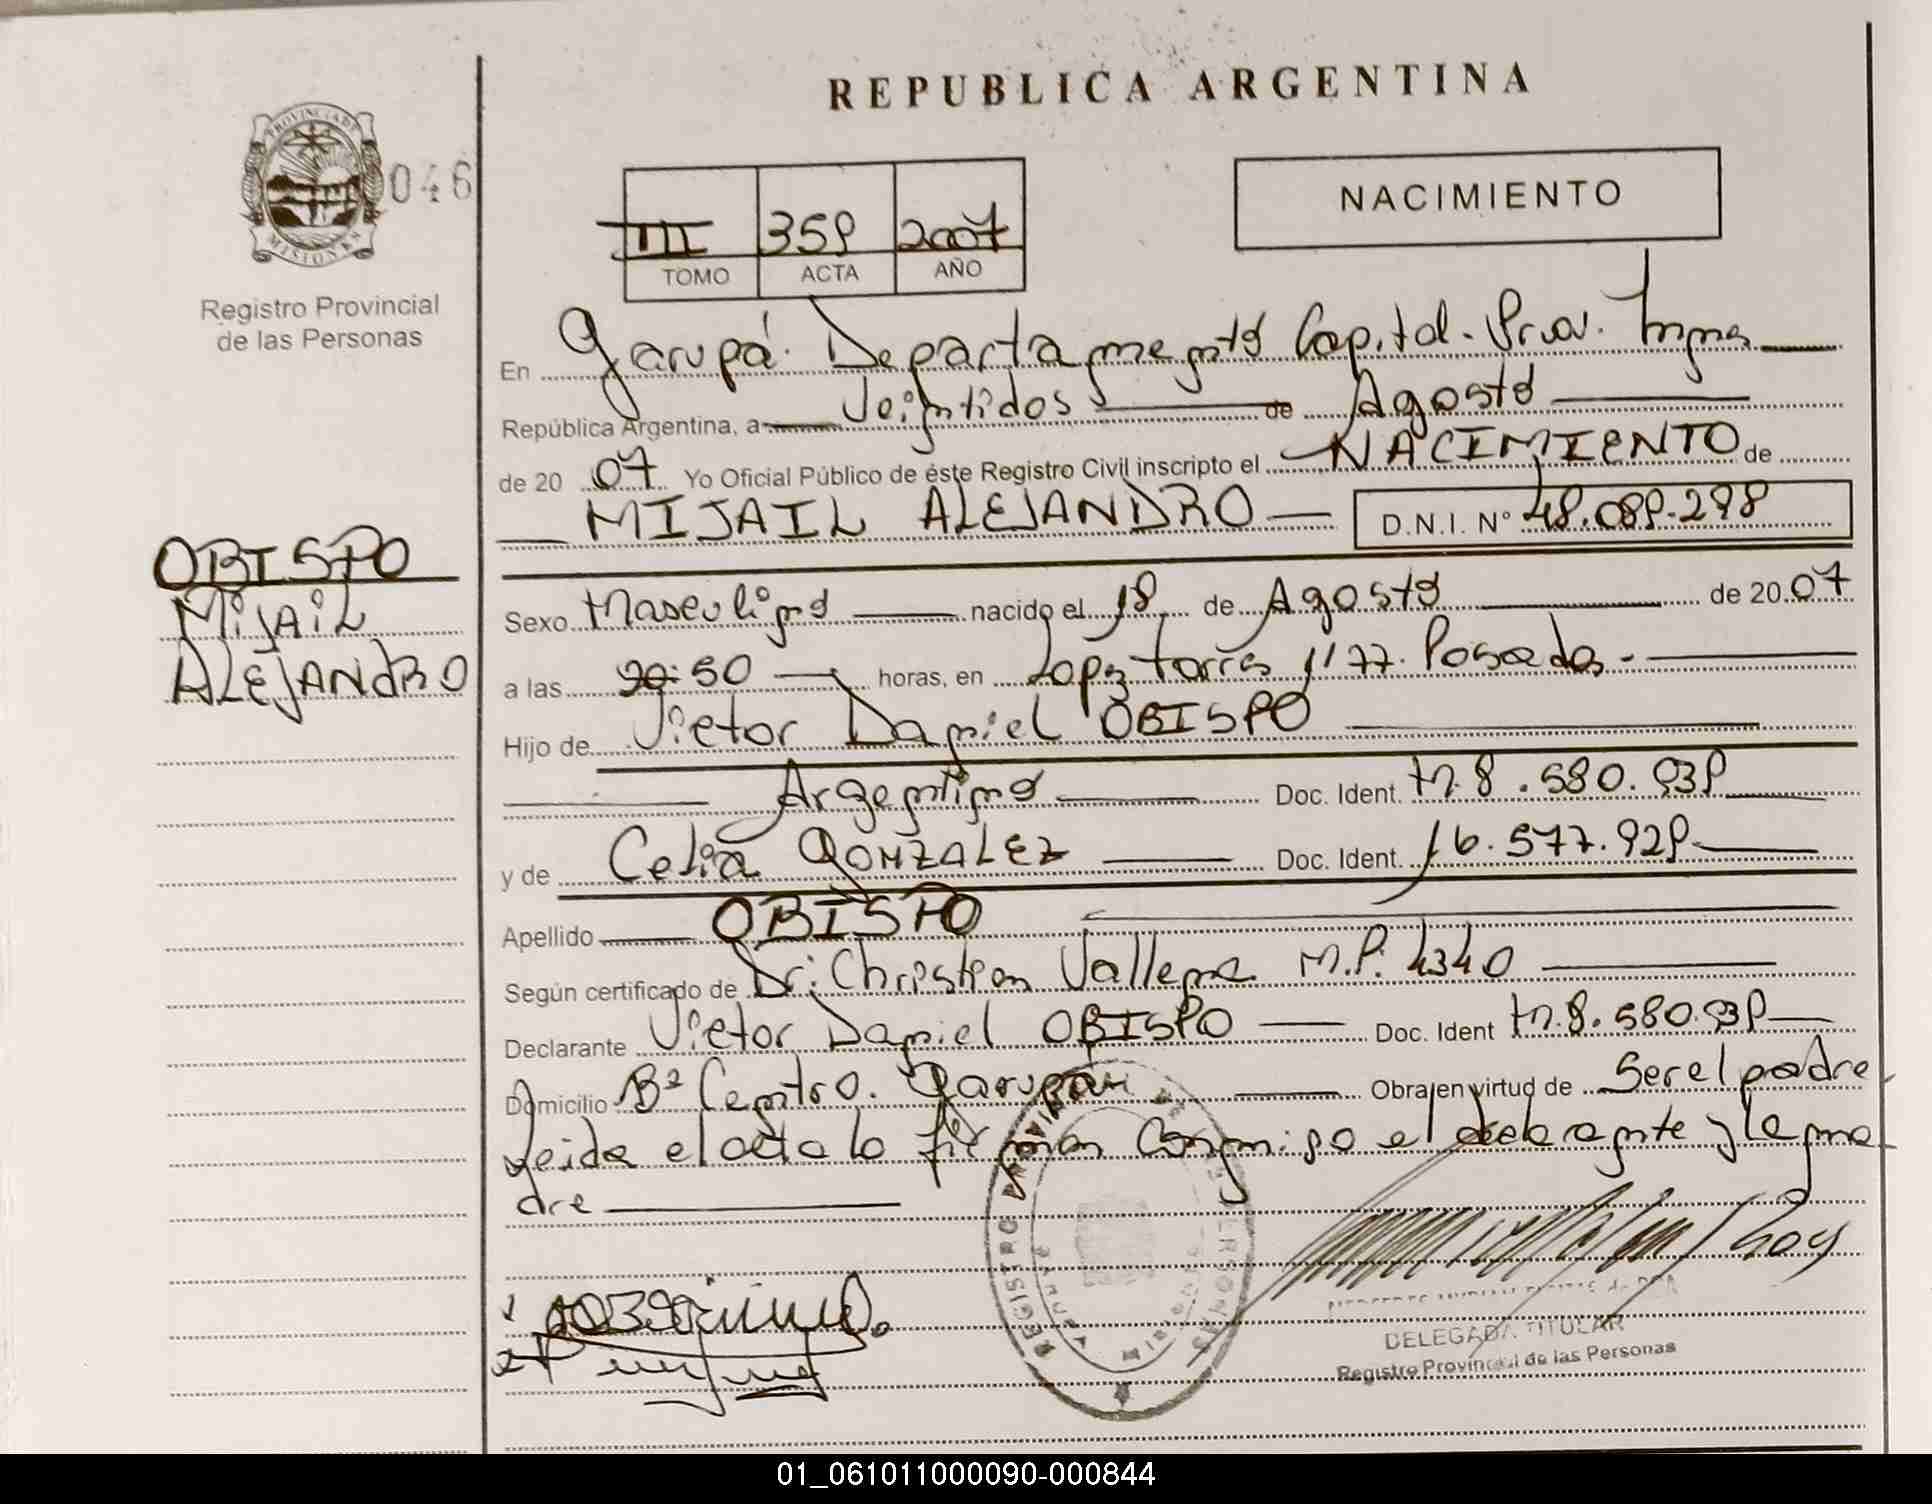 REPUBLICA ARGENTINA
PROVINCIA DE
MISIONES
046
Registro Provincial
de las Personas
III 359 2007
TOMO ACTA AÑO
NACIMIENTO
En Garupá. Departamento Capital. Prov. Mnes
República Argentina, a Veintidos de Agosto
de 20 07 Yo Oficial Público de éste Registro Civil inscripto el NACIMIENTO de
MIJAIL ALEJANDRO D.N.I. N° 48.089.298
OBISPO
MIJAIL
ALEJANDRO
Sexo Masculino nacido el 18 de Agosto de 20 07
a las 20:50 horas, en Lopz Torres 1177. Posadas.
Hijo de Victor Daniel OBISPO
Argentino Doc. Ident. M.8.580.939
y de Celia GONZALEZ Doc. Ident. 16.577.929
Apellido OBISPO
Según certificado de Dr. Christian M.P. 4340
Declarante Victor Daniel OBISPO Doc. Ident M.8.580.939
Domicilio Bº Centro. Garupá Obra en virtud de Ser el padre.
Leida el acta la firman conmigo el declarante y la ma
dre
REGISTRO PROVINCIAL DE LAS PERSONAS
DELEGADA TITULAR
Registro Provincial de las Personas
01_061011000090-000844